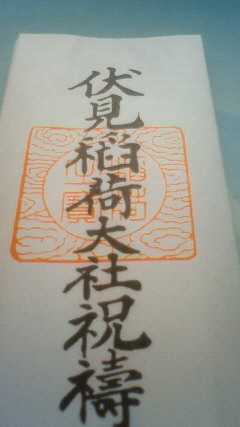 伏見稲荷大社祝禱